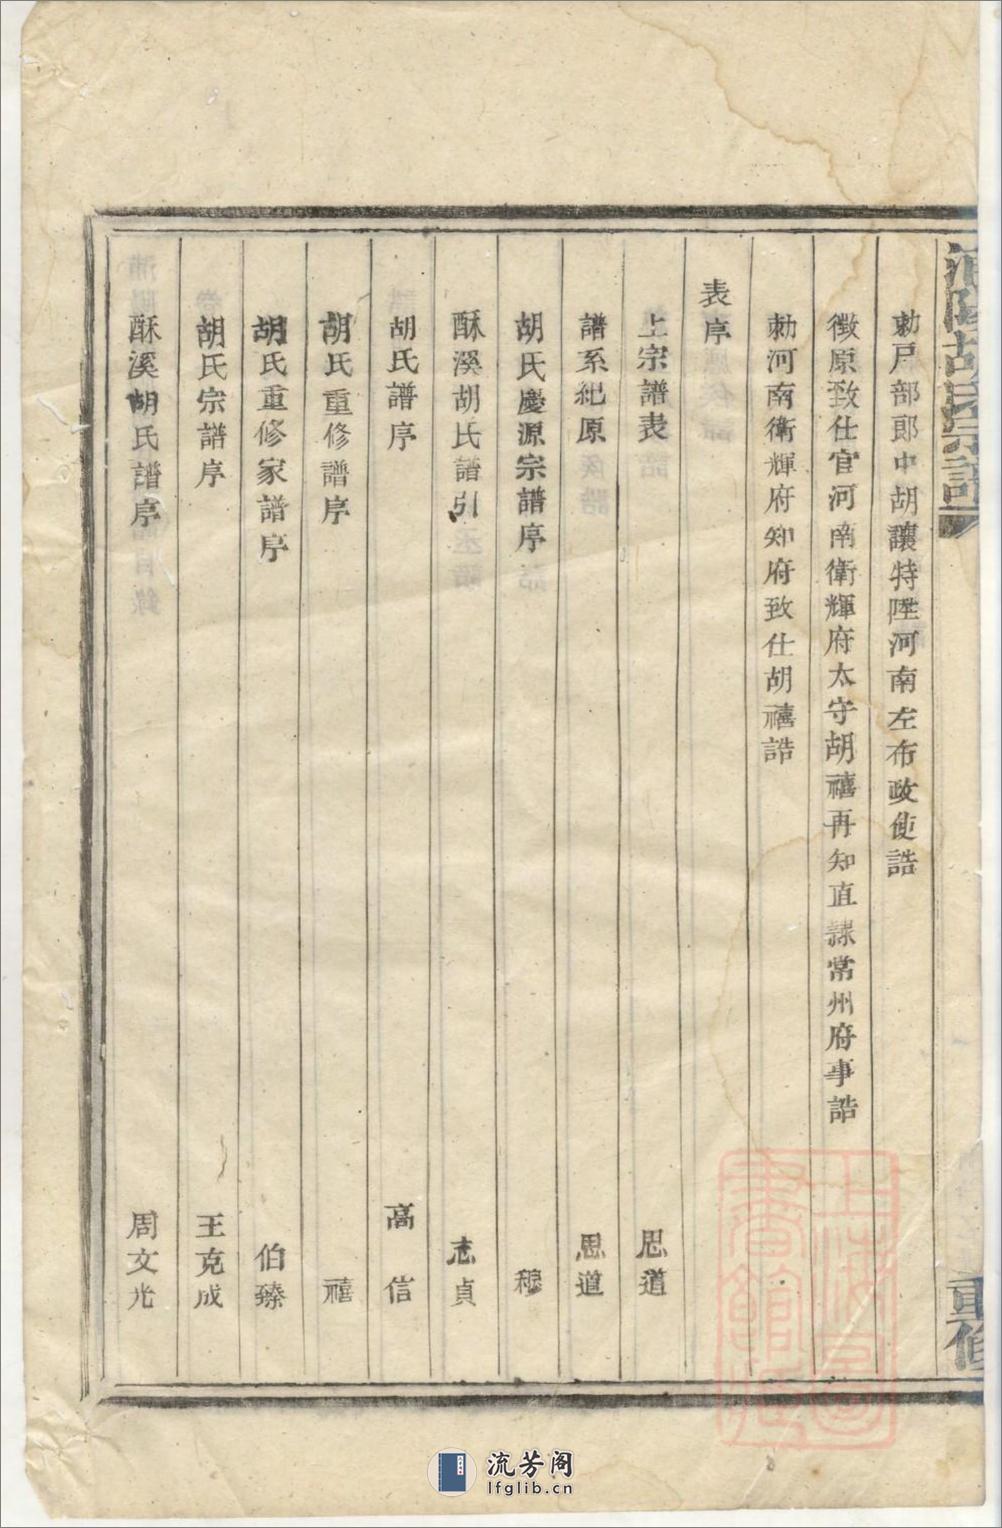 浦陽胡氏宗譜
重修
勅戶部郎中胡讓特陞河南左布政使誥
徵原致仕官河南衛輝府太守胡禧再知直隸常州府事誥
勅河南衛輝府知府致仕胡禧誥
表序
上宗譜表 思道
譜系紀原 思道
胡氏慶源宗譜序 穆
酥溪胡氏譜引 志貞
胡氏譜序 高信
胡氏重修譜序 禧
胡氏重修家譜序 伯臻
胡氏宗譜序 王克成
酥溪胡氏譜序 周文光
上海圖書館藏
流芳阁
lfglib.cn